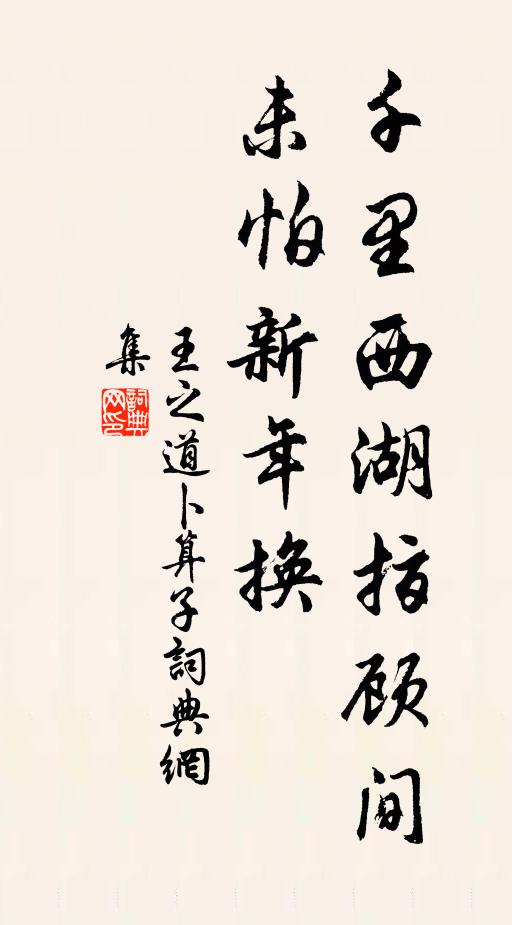 千里西湖指顾间
未怕新年换
王之道卜算子詞典網
集
詞典
网印